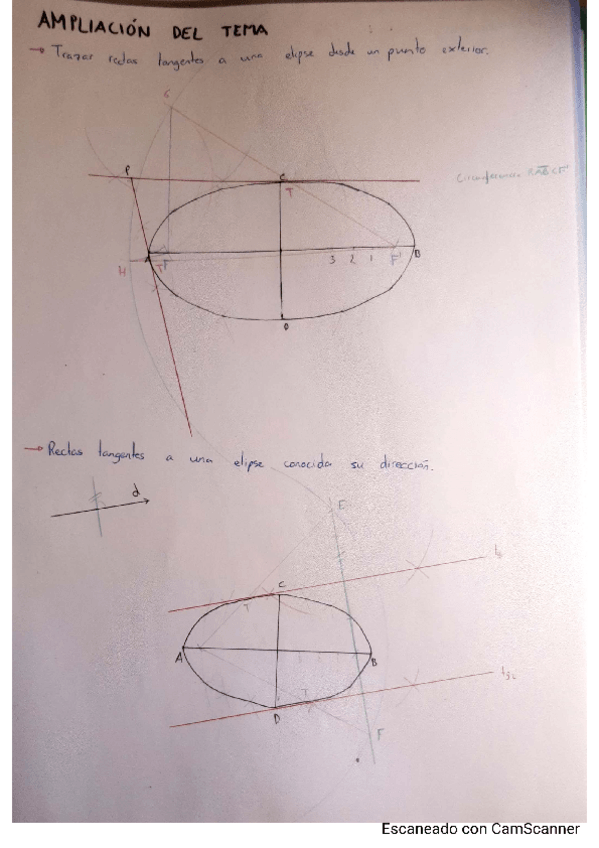 AMPLIACIÓN DEL TEMA
→ Trazar rectas tangentes a una elipse desde un punto exterior.
G
P
C
T
Circunferencia
A
F
3 2 1
F'
B
H
T
D
→ Rectas tangentes a una elipse conocida su dirección.
d
E
C
T
A
B
T
D
F
Escaneado con CamScanner